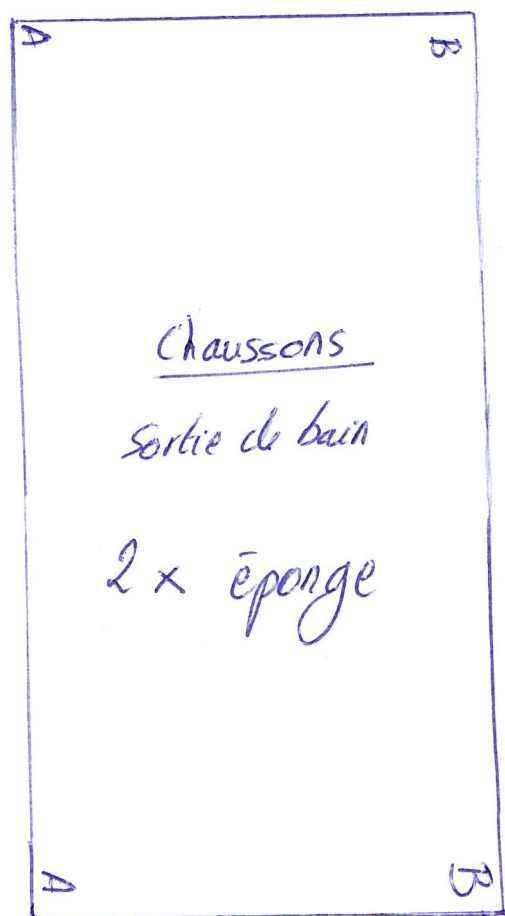 A B
Chaussons
Sortie de bain
2 x éponge
A B